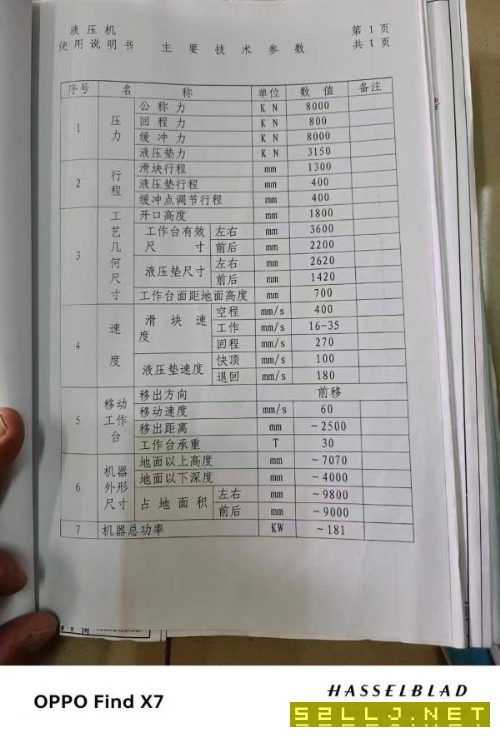 液压机 第 1 页
使用说明书 主要技术参数 共 1 页
序号 名称 单位 数值 备注
1 压力 公称力 KN 8000
回程力 KN 800
缓冲力 KN 8000
液压垫力 KN 3150
2 行程 滑块行程 mm 1300
液压垫行程 mm 400
缓冲点调节行程 mm 400
3 工艺几何尺寸 开口高度 mm 1800
工作台有效尺寸 左右 mm 3600
前后 mm 2200
液压垫尺寸 左右 mm 2620
前后 mm 1420
工作台面距地面高度 mm 700
4 速度 滑块速度 空程 mm/s 400
工作 mm/s 16-35
回程 mm/s 270
液压垫速度 快顶 mm/s 100
退回 mm/s 180
5 移动工作台 移出方向 前移
移动速度 mm/s 60
移出距离 mm ~2500
工作台承重 T 30
6 机器外形尺寸 地面以上高度 mm ~7070
地面以下深度 mm ~4000
占地面积 左右 mm ~9800
前后 mm ~9000
7 机器总功率 KW ~181
OPPO Find X7
HASSELBLAD
52LLJ.NET